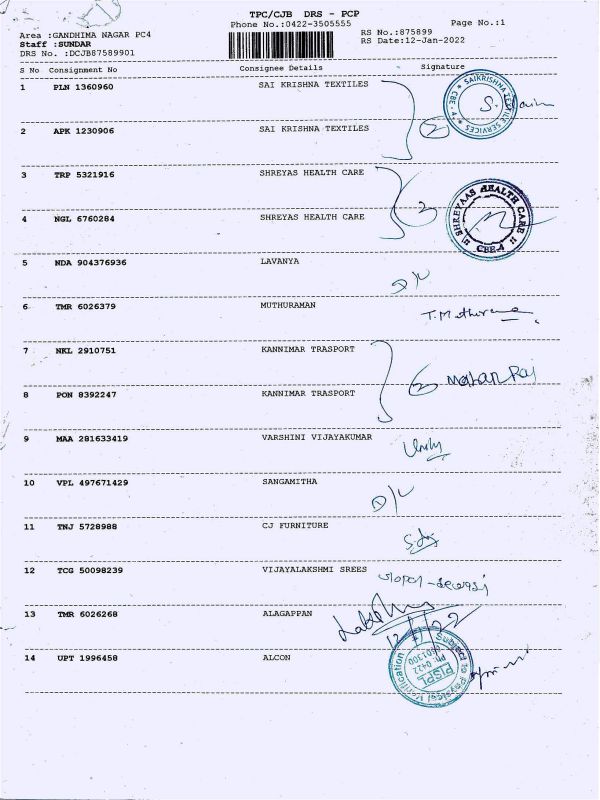 TPC/CJB DRS - PCP
Phone No.:0422-3505555
Page No.:1
Area :GANDHIMA NAGAR PC4
Staff :SUNDAR
DRS No. :DCJB87589901
RS No.:875899
RS Date:12-Jan-2022
S No Consignment No Consignee Details Signature
1 PLN 1360960 SAI KRISHNA TEXTILES
2 APK 1230906 SAI KRISHNA TEXTILES
2
SAIKRISHNA TEXTILE SERVICES
CBE-4
3 TRP 5321916 SHREYAS HEALTH CARE
4 NGL 6760284 SHREYAS HEALTH CARE
2
SHREYAAS HEALTH CARE
CBE-4
5 NDA 904376936 LAVANYA
D/L
6 TMR 6026379 MUTHURAMAN
7 NKL 2910751 KANNIMAR TRASPORT
8 PON 8392247 KANNIMAR TRASPORT
2 Mohan Raj
9 MAA 281633419 VARSHINI VIJAYAKUMAR
10 VPL 497671429 SANGAMITHA
D/L
11 TNJ 5728988 CJ FURNITURE
12 TCG 50098239 VIJAYALAKSHMI SREES
13 TMR 6026268 ALAGAPPAN
14 UPT 1996458 ALCON
Subject to Physical Verification
PISPL
Ph: 0422